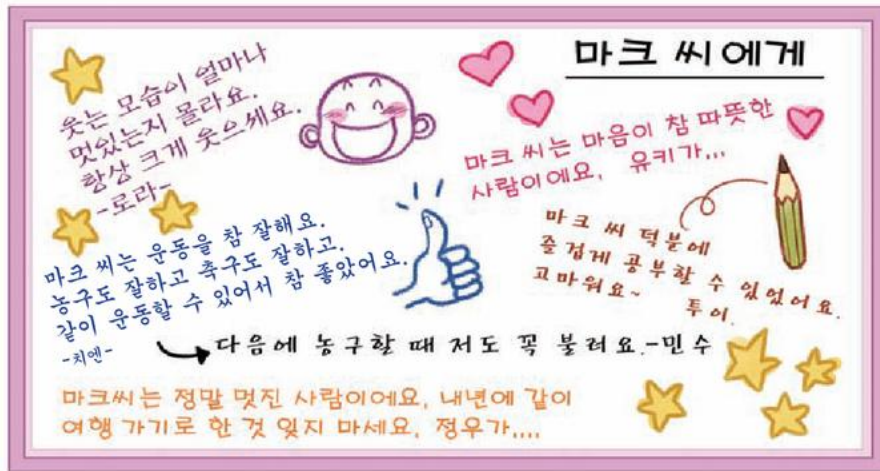 마크 씨에게
웃는 모습이 얼마나
멋있는지 몰라요.
항상 크게 웃으세요.
-로라-
마크 씨는 마음이 참 따뜻한
사람이에요, 유키가...
마크 씨는 운동을 참 잘해요.
농구도 잘하고 축구도 잘하고.
같이 운동할 수 있어서 참 좋았어요.
-치엔-
마크 씨 덕분에
즐겁게 공부할 수 있었어요.
고마워요~
투이.
다음에 농구할 때 저도 꼭 불러요.-민수
마크씨는 정말 멋진 사람이에요, 내년에 같이
여행 가기로 한 것 잊지 마세요, 정우가....